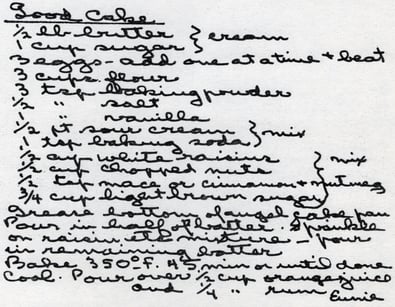 Good Cake
1/2 lb butter } cream
1 cup sugar
3 eggs - add one at a time + beat
3 cups flour
3 tsp baking powder
1/2 " salt
1 " vanilla
1/2 pt sour cream } mix
1 tsp baking soda
1/2 cup white raisins } mix
1/2 cup chopped nuts
1/2 tsp mace or cinnamon + nutmeg
3/4 cup light brown sugar
Grease bottom of angel cake pan
Pour in half of batter. Sprinkle
on raisin etc mixture - pour
in remaining batter
Bake 350°F. 45 min or until done
Cool. Pour over 1/2 cup orange juice
and 1/4 " rum
Eunie